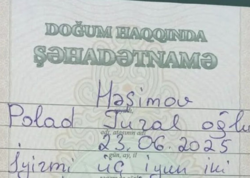 DOĞUM HAQQINDA
ŞƏHADƏTNAMƏ
Həşimov
Polad Tural oğlu
23.06.2025
İyirmi üç iyun iki